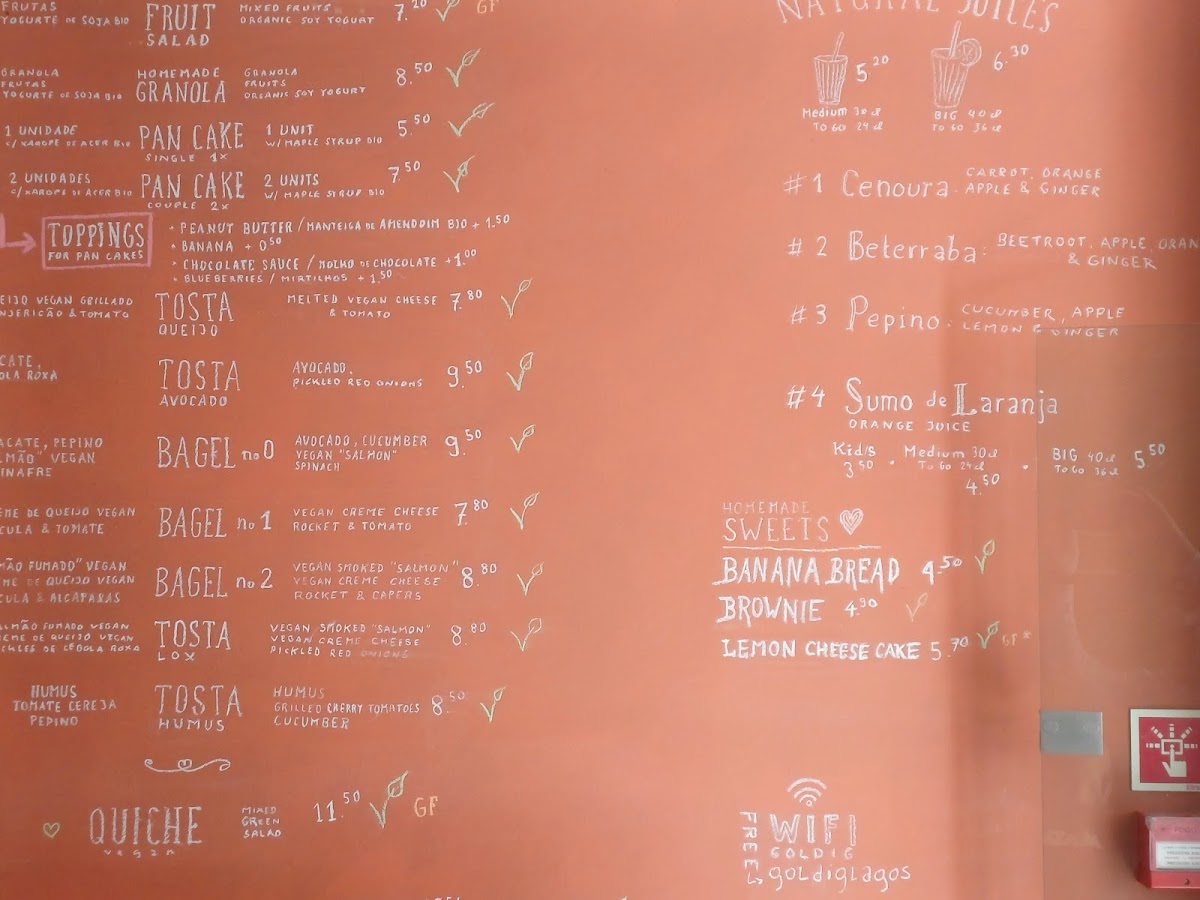 FRUTAS
YOGURTE DE SOJA BIO
FRUIT
SALAD
MIXED FRUITS
ORGANIC SOY YOGURT
7.20
GF
GRANOLA
FRUTAS
YOGURTE DE SOJA BIO
HOMEMADE
GRANOLA
GRANOLA
FRUITS
ORGANIC SOY YOGURT
8.50
1 UNIDADE
C/XAROPE DE ACER BIO
PAN CAKE
SINGLE 1x
1 UNIT
W/ MAPLE SYRUP BIO
5.50
2 UNIDADES
C/XAROPE DE ACER BIO
PAN CAKE
COUPLE 2x
2 UNITS
W/ MAPLE SYRUP BIO
7.50
TOPPINGS
FOR PAN CAKES
• PEANUT BUTTER / MANTEIGA DE AMENDOIM BIO + 1.50
• BANANA + 0.50
• CHOCOLATE SAUCE / MOLHO DE CHOCOLATE +1.00
• BLUEBERRIES / MIRTILHOS + 1.50
EIJO VEGAN GRILLADO
NJERICÃO & TOMATO
TOSTA
QUEIJO
MELTED VEGAN CHEESE
& TOMATO
7.80
CATE,
OLA ROXA
TOSTA
AVOCADO
AVOCADO,
PICKLED RED ONIONS
9.50
ACATE, PEPINO
LMÃO" VEGAN
INAFRE
BAGEL no 0
AVOCADO, CUCUMBER
VEGAN "SALMON"
SPINACH
9.50
EME DE QUEIJO VEGAN
CULA & TOMATE
BAGEL no 1
VEGAN CREME CHEESE
ROCKET & TOMATO
7.80
MÃO FUMADO" VEGAN
EME DE QUEIJO VEGAN
CULA & ALCAPARAS
BAGEL no 2
VEGAN SMOKED "SALMON"
VEGAN CREME CHEESE
ROCKET & CAPERS
8.80
LMÃO FUMADO VEGAN
EME DE QUEIJO VEGAN
CKLES DE CEBOLA ROXA
TOSTA
LOX
VEGAN SMOKED "SALMON"
VEGAN CREME CHEESE
PICKLED RED ONIONS
8.80
HUMUS
TOMATE CEREJA
PEPINO
TOSTA
HUMUS
HUMUS
GRILLED CHERRY TOMATOES
CUCUMBER
8.50
QUICHE
vegan
MIXED
GREEN
SALAD
11.50
GF
NATURAL JUICES
5.20
Medium 30 cl
To Go 24 cl
6.30
BIG 40 cl
To Go 36 cl
#1 Cenoura. CARROT, ORANGE
APPLE & GINGER
#2 Beterraba: BEETROOT, APPLE, ORAN
& GINGER
#3 Pepino. CUCUMBER, APPLE
LEMON & GINGER
#4 Sumo de Laranja
ORANGE JUICE
Kid/s
3.50
Medium 30cl
To Go 24cl
4.50
BIG 40cl
To Go 36cl
5.50
HOMEMADE
SWEETS
BANANA BREAD 4.50
BROWNIE 4.90
LEMON CHEESE CAKE 5.70 GF*
FREE
WIFI
GOLDIG
goldiglagos